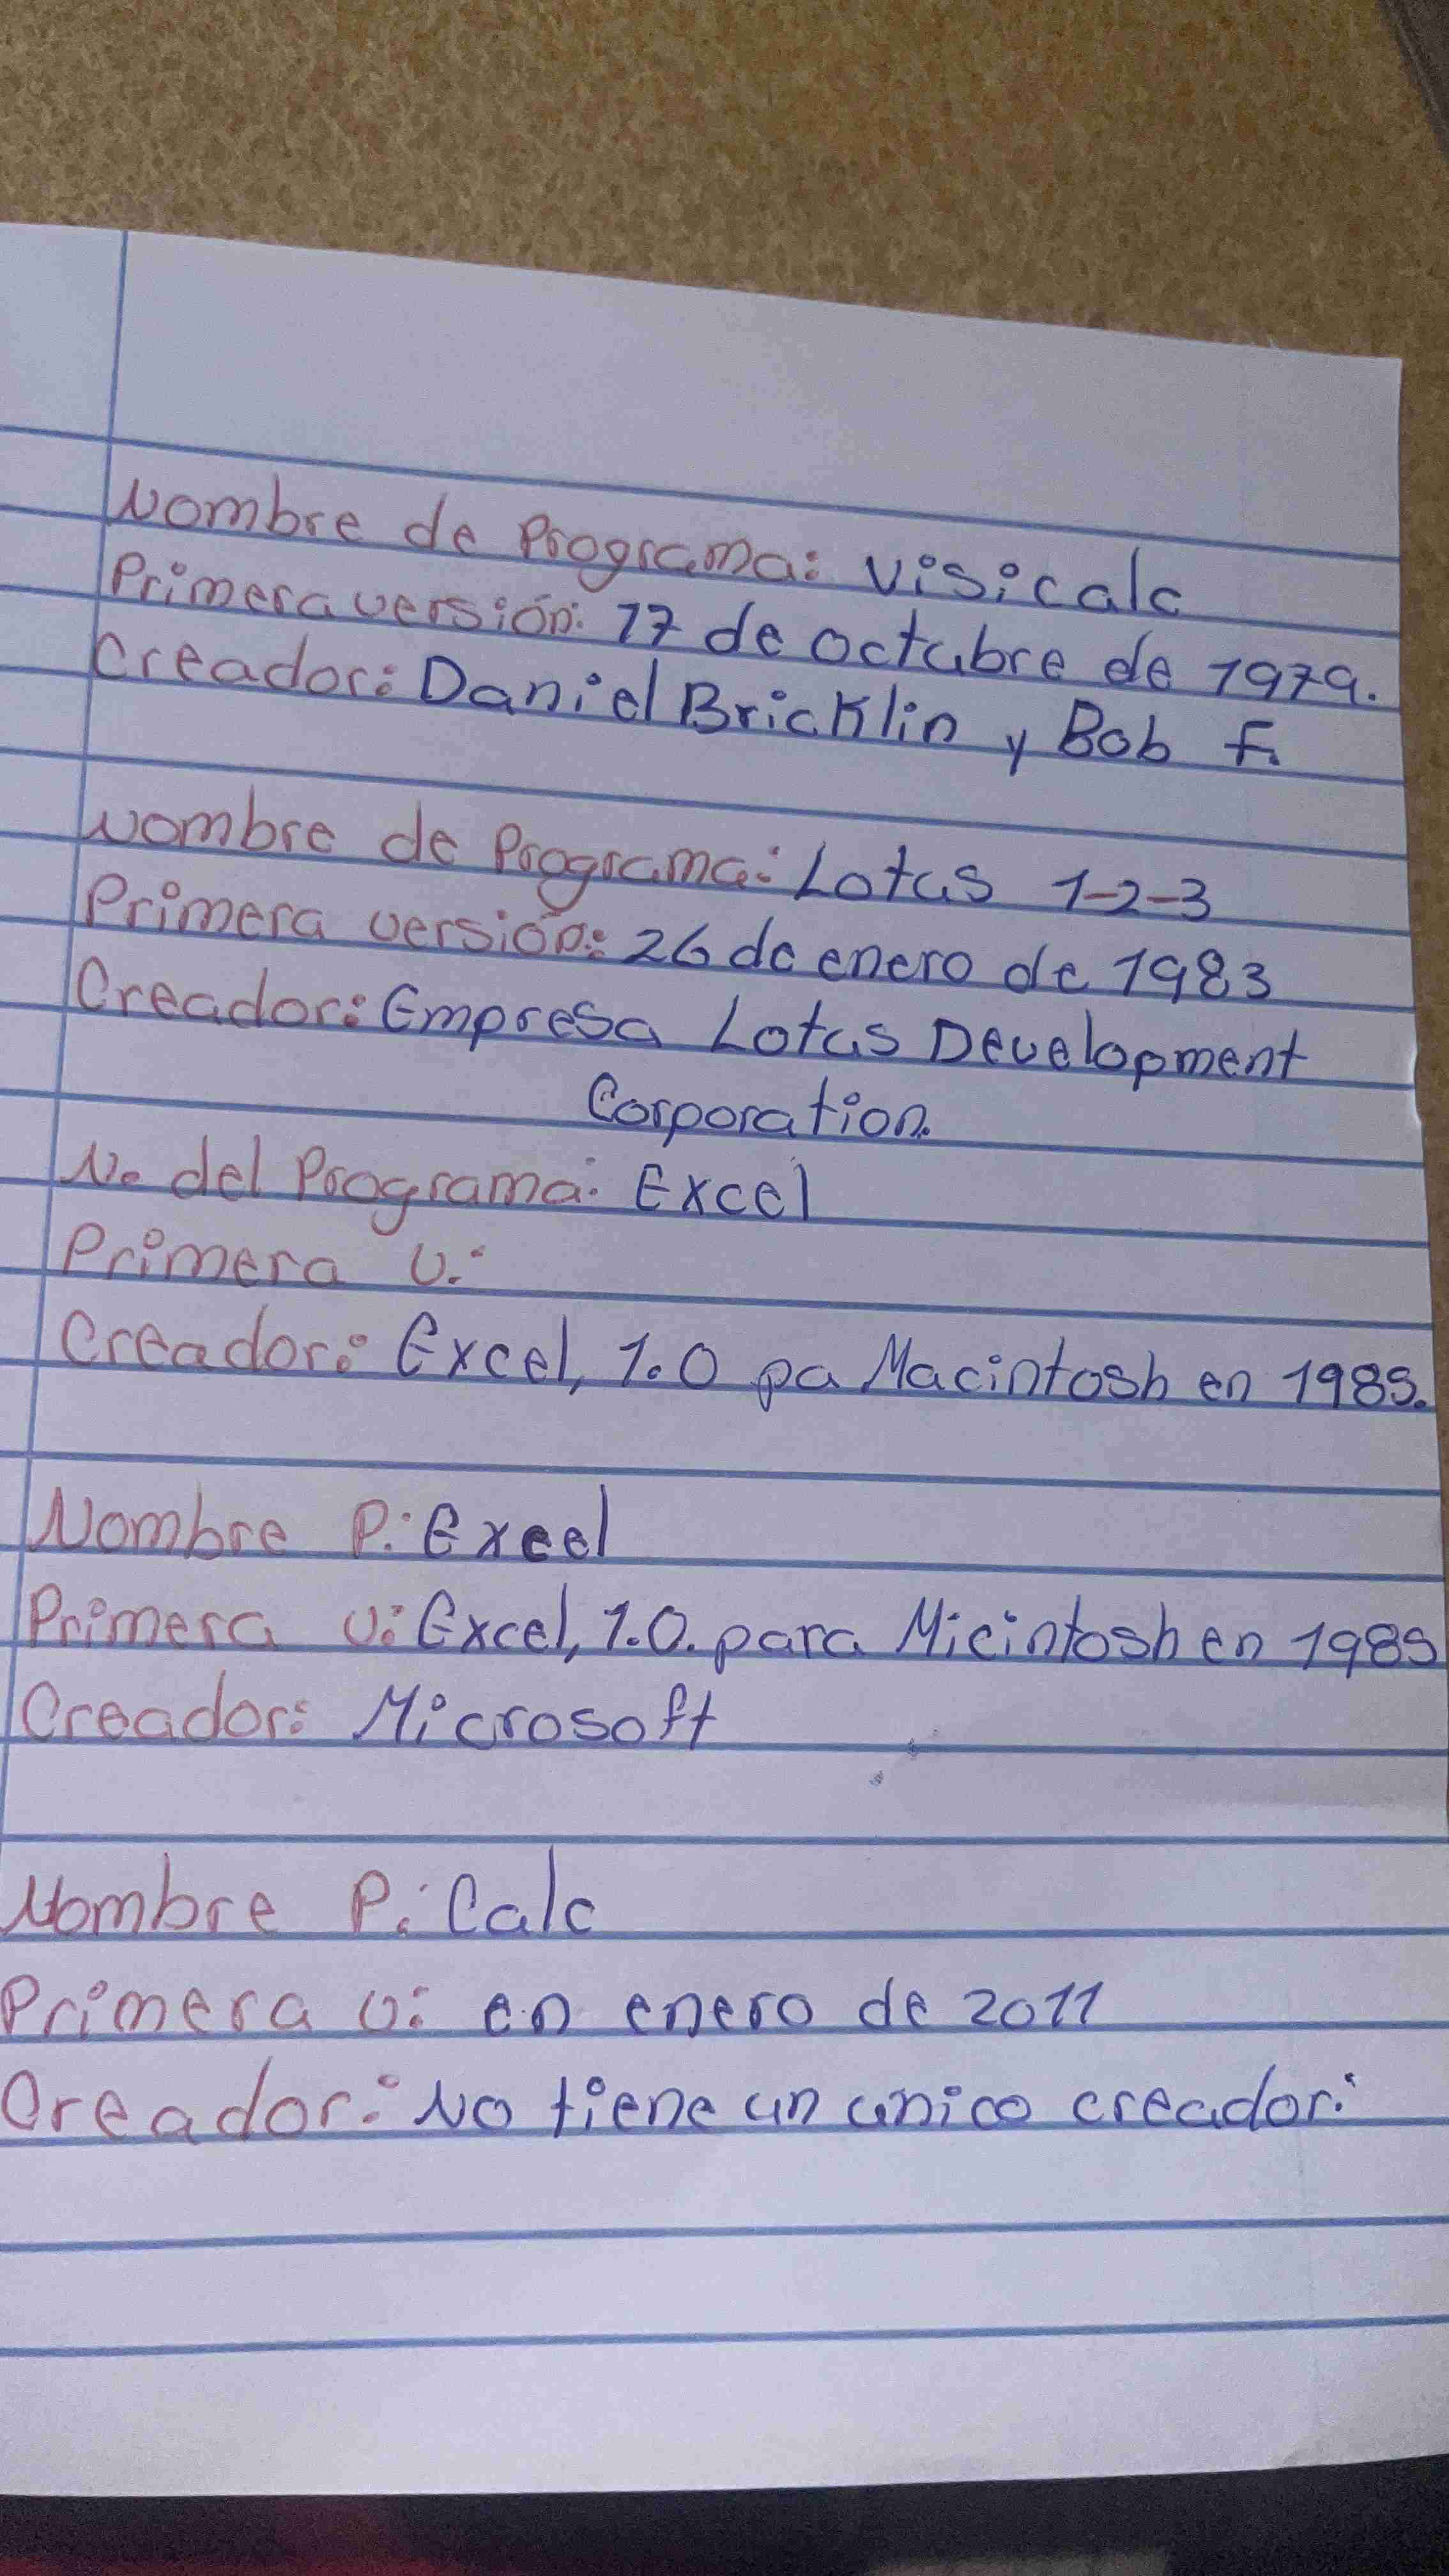 Nombre de Programa: Visicalc
Primera versión: 17 de octubre de 1979.
Creador: Daniel Bricklin y Bob F.
Nombre de Programa: Lotus 1-2-3
Primera versión: 26 de enero de 1983
Creador: Empresa Lotus Development
Corporation.
N. del Programa: Excel
Primera v.:
Creador: Excel, 1.0 pa Macintosh en 1985.
Nombre P.: Excel
Primera v: Excel, 1.0. para Micintosh en 1985
Creador: Microsoft
Nombre P.: Calc
Primera v: en enero de 2011
Creador: No tiene un unico creador.